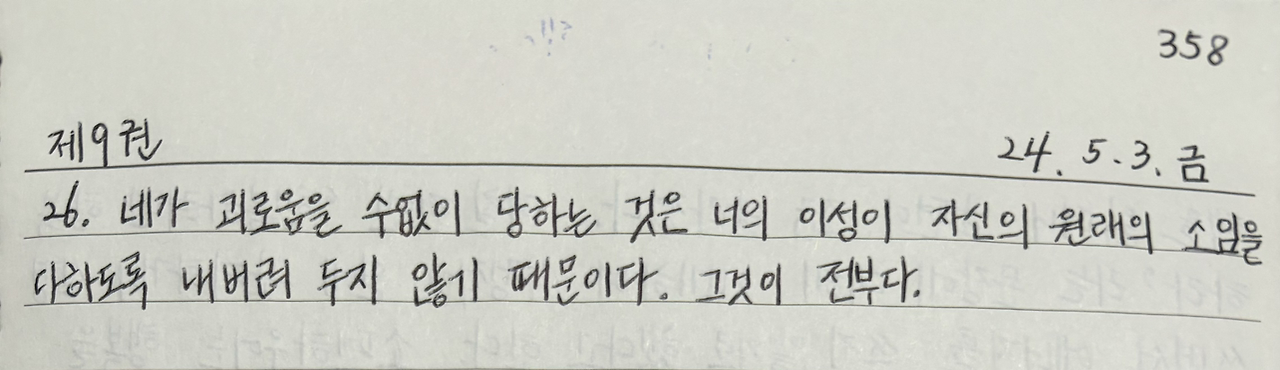 358
제9권 24. 5. 3. 금
26. 네가 괴로움을 수없이 당하는 것은 너의 이성이 자신의 원래의 소임을
다하도록 내버려 두지 않기 때문이다. 그것이 전부다.